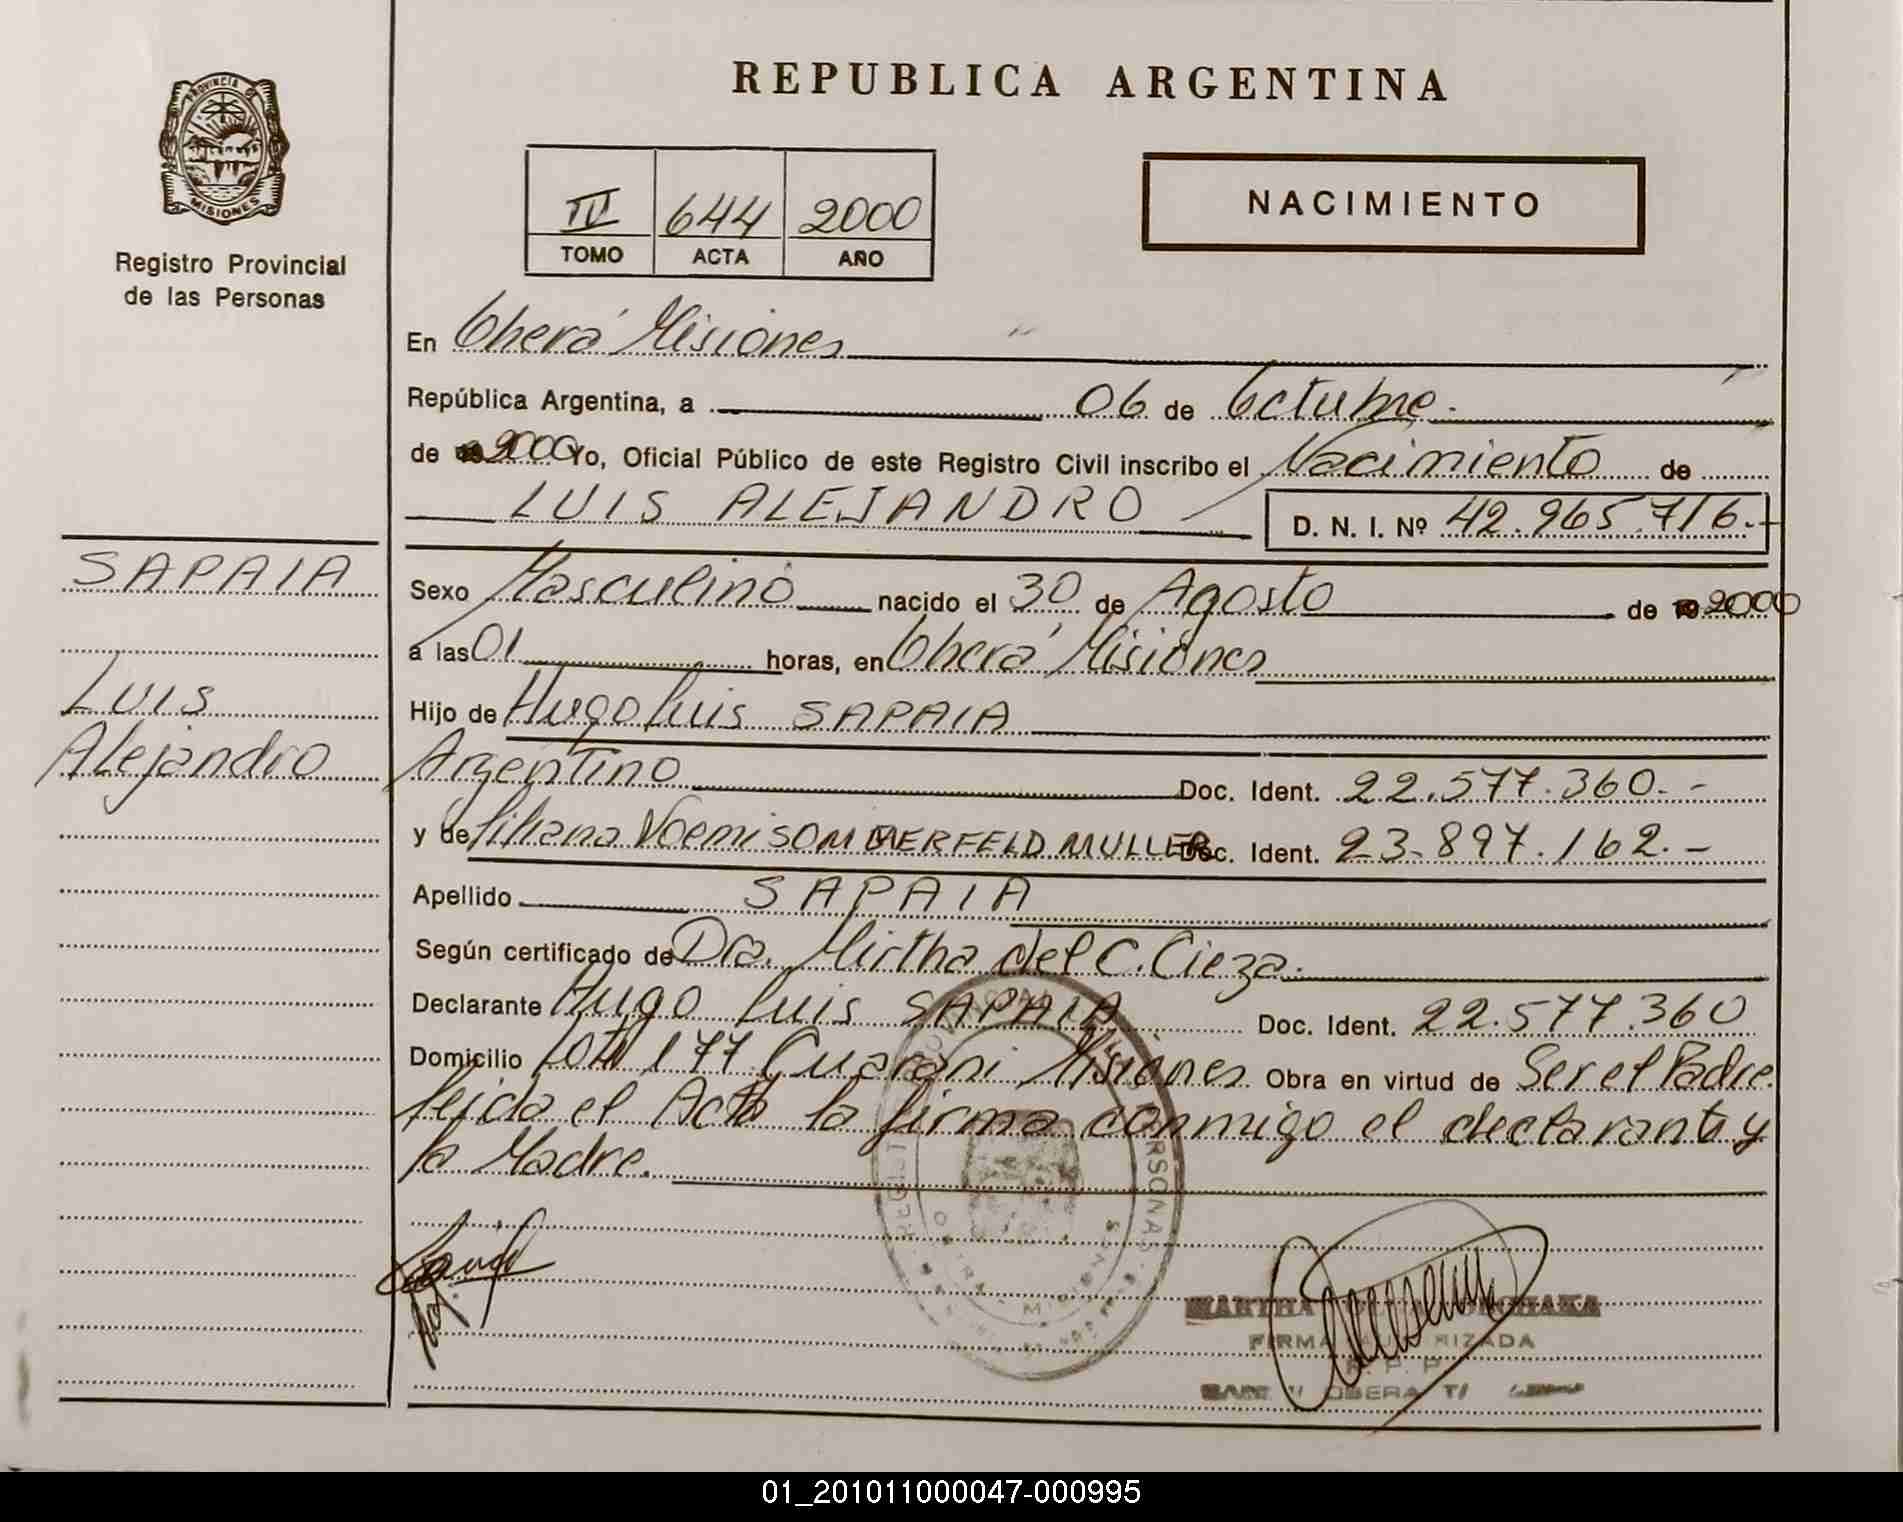 PROVINCIA DE
MISIONES
Registro Provincial
de las Personas
SAPAIA
Luis
Alejandro
REPUBLICA ARGENTINA
IV 644 2000
TOMO ACTA AÑO
NACIMIENTO
En Oberá Misiones
República Argentina, a 06 de Octubre.
de 2000 Yo, Oficial Público de este Registro Civil inscribo el Nacimiento de
LUIS ALEJANDRO D. N. I. Nº 42.965.716.-
Sexo Masculino nacido el 30 de Agosto de 19 2000
a las 01 horas, en Oberá Misiones
Hijo de Hugo Luis SAPAIA
Argentino Doc. Ident. 22.577.360.-
y de Liliana Noemi SOMMERFELD MULLER Doc. Ident. 23.897.162.-
Apellido SAPAIA
Según certificado de Dra. Mirtha del C. Cieza.
Declarante Hugo Luis SAPAIA Doc. Ident. 22.577.360
Domicilio Lote 177 Guarani Misiones Obra en virtud de Ser el Padre.
Leida el Acta la firma conmigo el declarante y
la Madre.
MARTHA
FIRMA AUTORIZADA
R. P. P.
OBERA
01_201011000047-000995